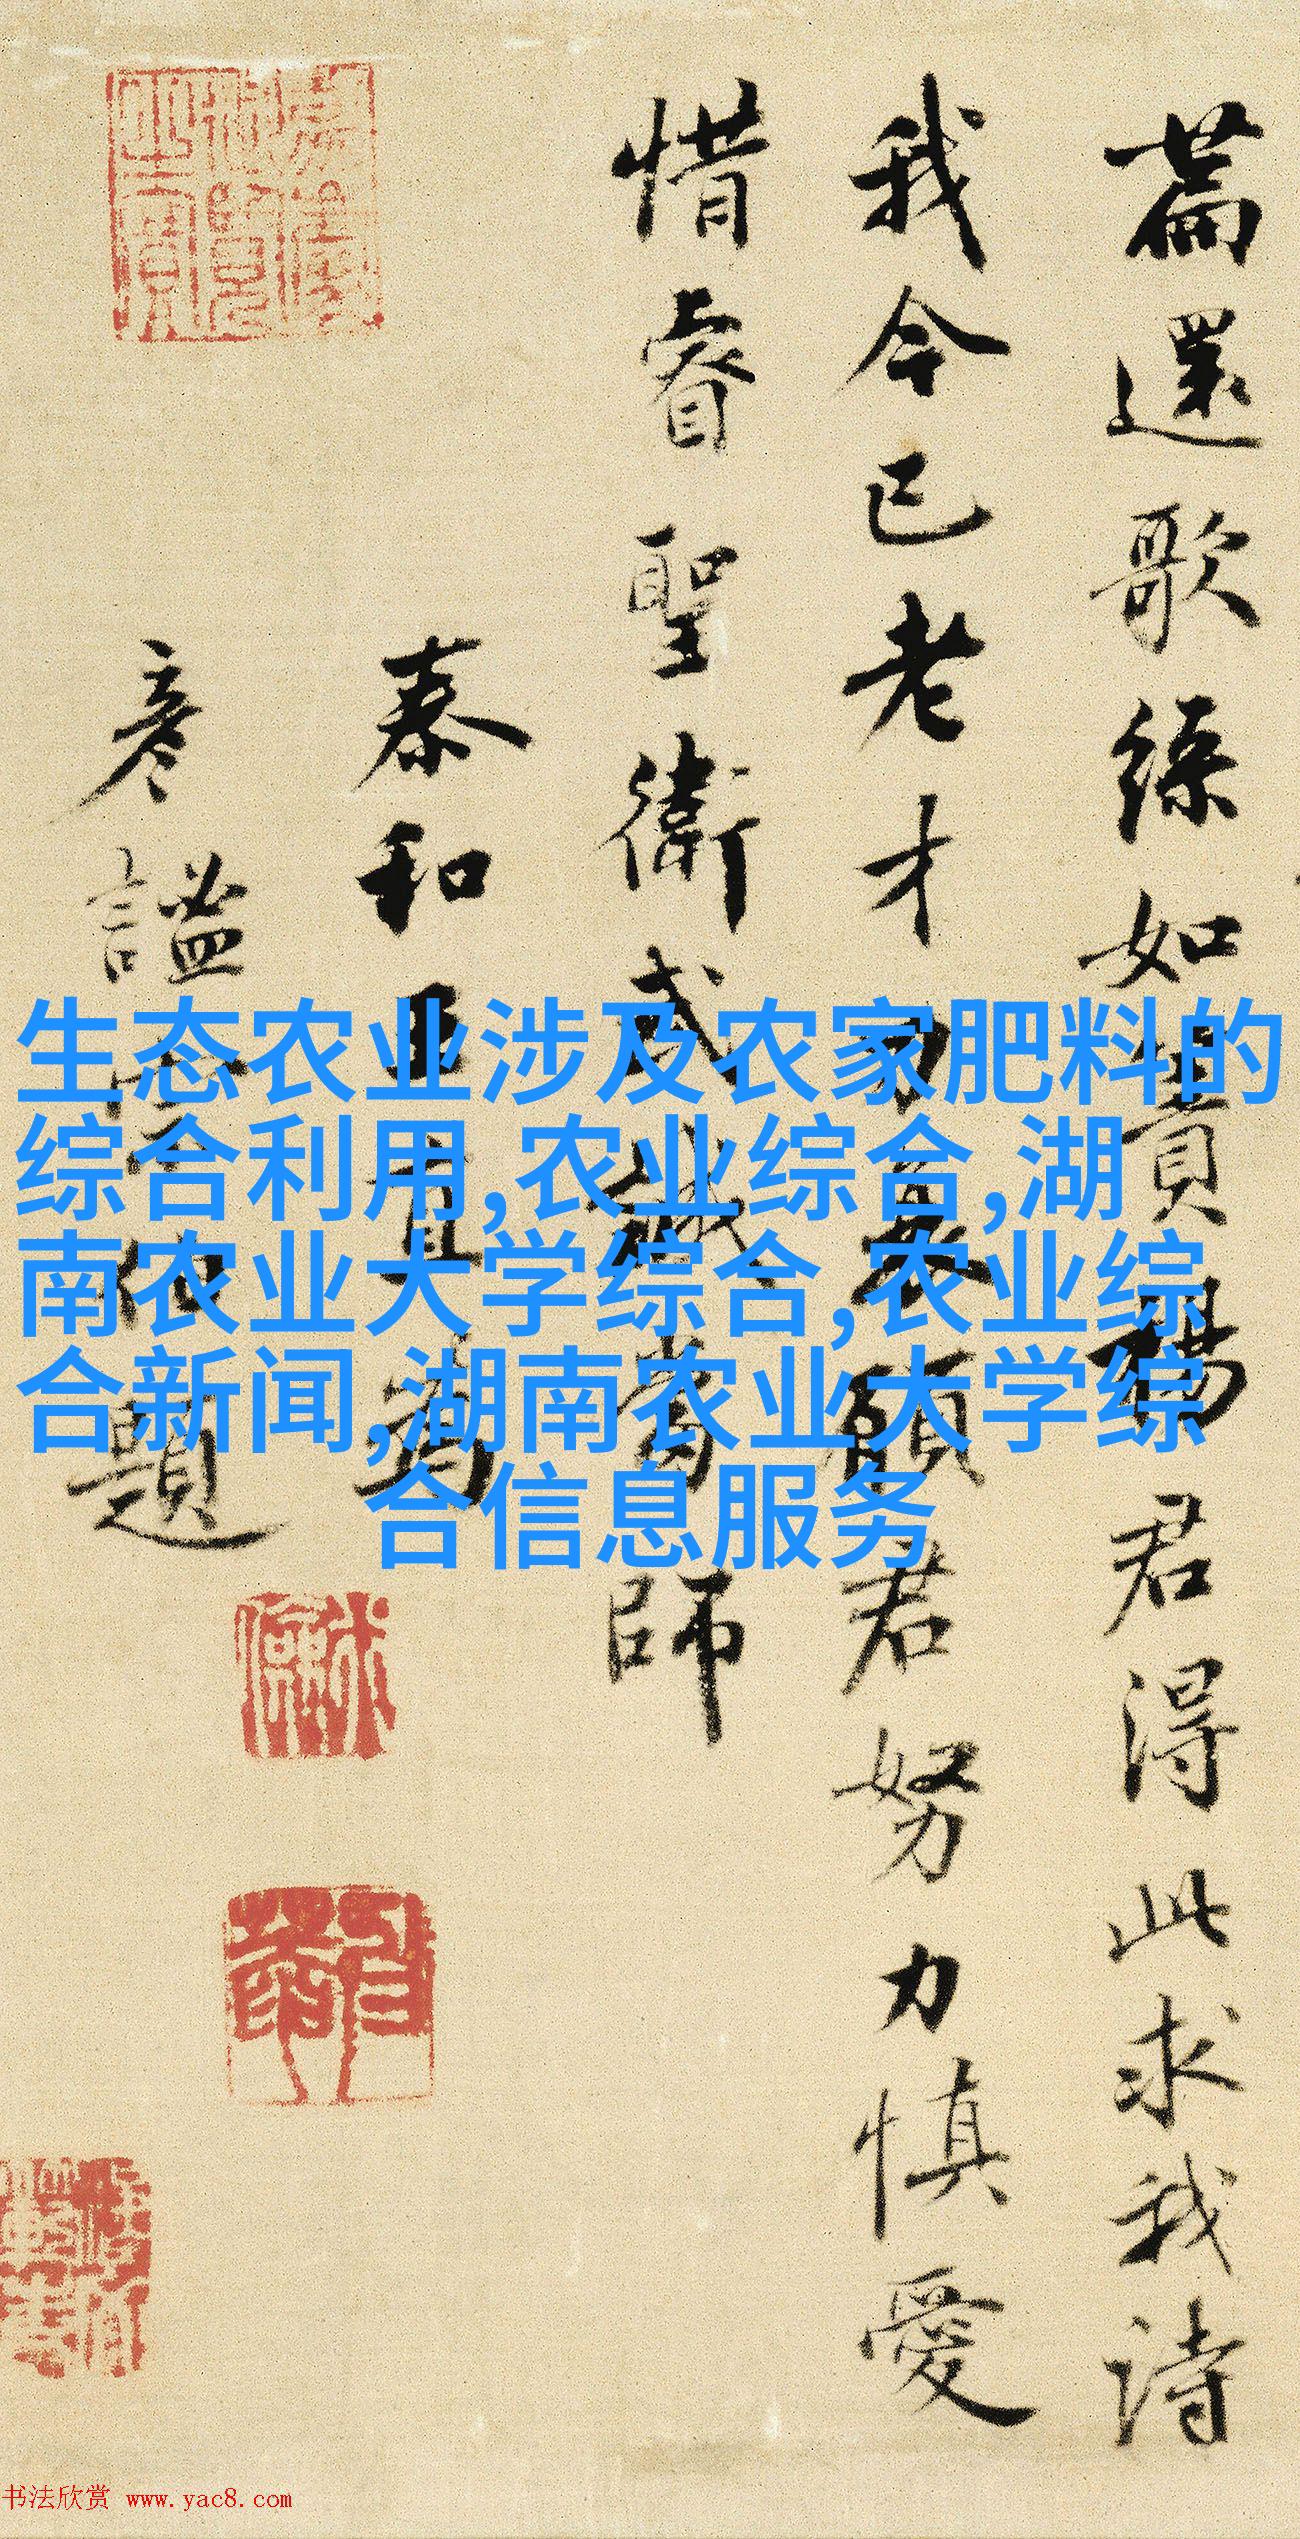 生态农业涉及农家肥料的
综合利用,农业综合,湖
南农业大学综合,农业综
合新闻,湖南农业大学综
合信息服务
篇還歌綠如簀楊君得此求我詩
我今已老才力衰願君努力慎愛
惜睿聖衛武誠當師
泰和王直為
彥謐伯題
书法欣赏 www.yac8.com